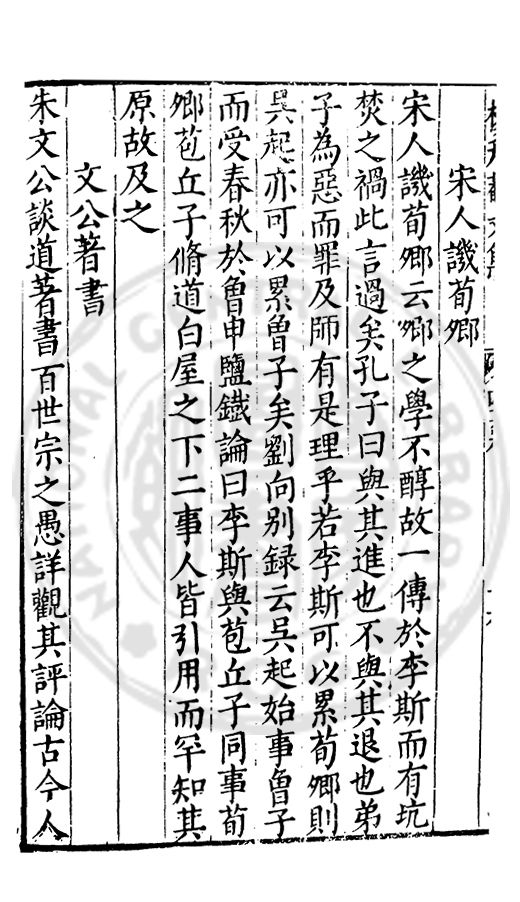 宋人譏荀卿
宋人譏荀卿云卿之學不醇故一傳於李斯而有坑
焚之禍此言過矣孔子曰與其進也不與其退也弟
子為惡而罪及師有是理乎若李斯可以累荀卿則
吳起亦可以累曾子矣劉向別録云吳起始事曾子
而受春秋於魯申鹽鐵論曰李斯與苞丘子同事荀
卿苞丘子脩道白屋之下二事人皆引用而罕知其
原故及之
文公著書
朱文公談道著書百世宗之愚詳觀其評論古今人
NATIONAL CENTRAL LIBRARY